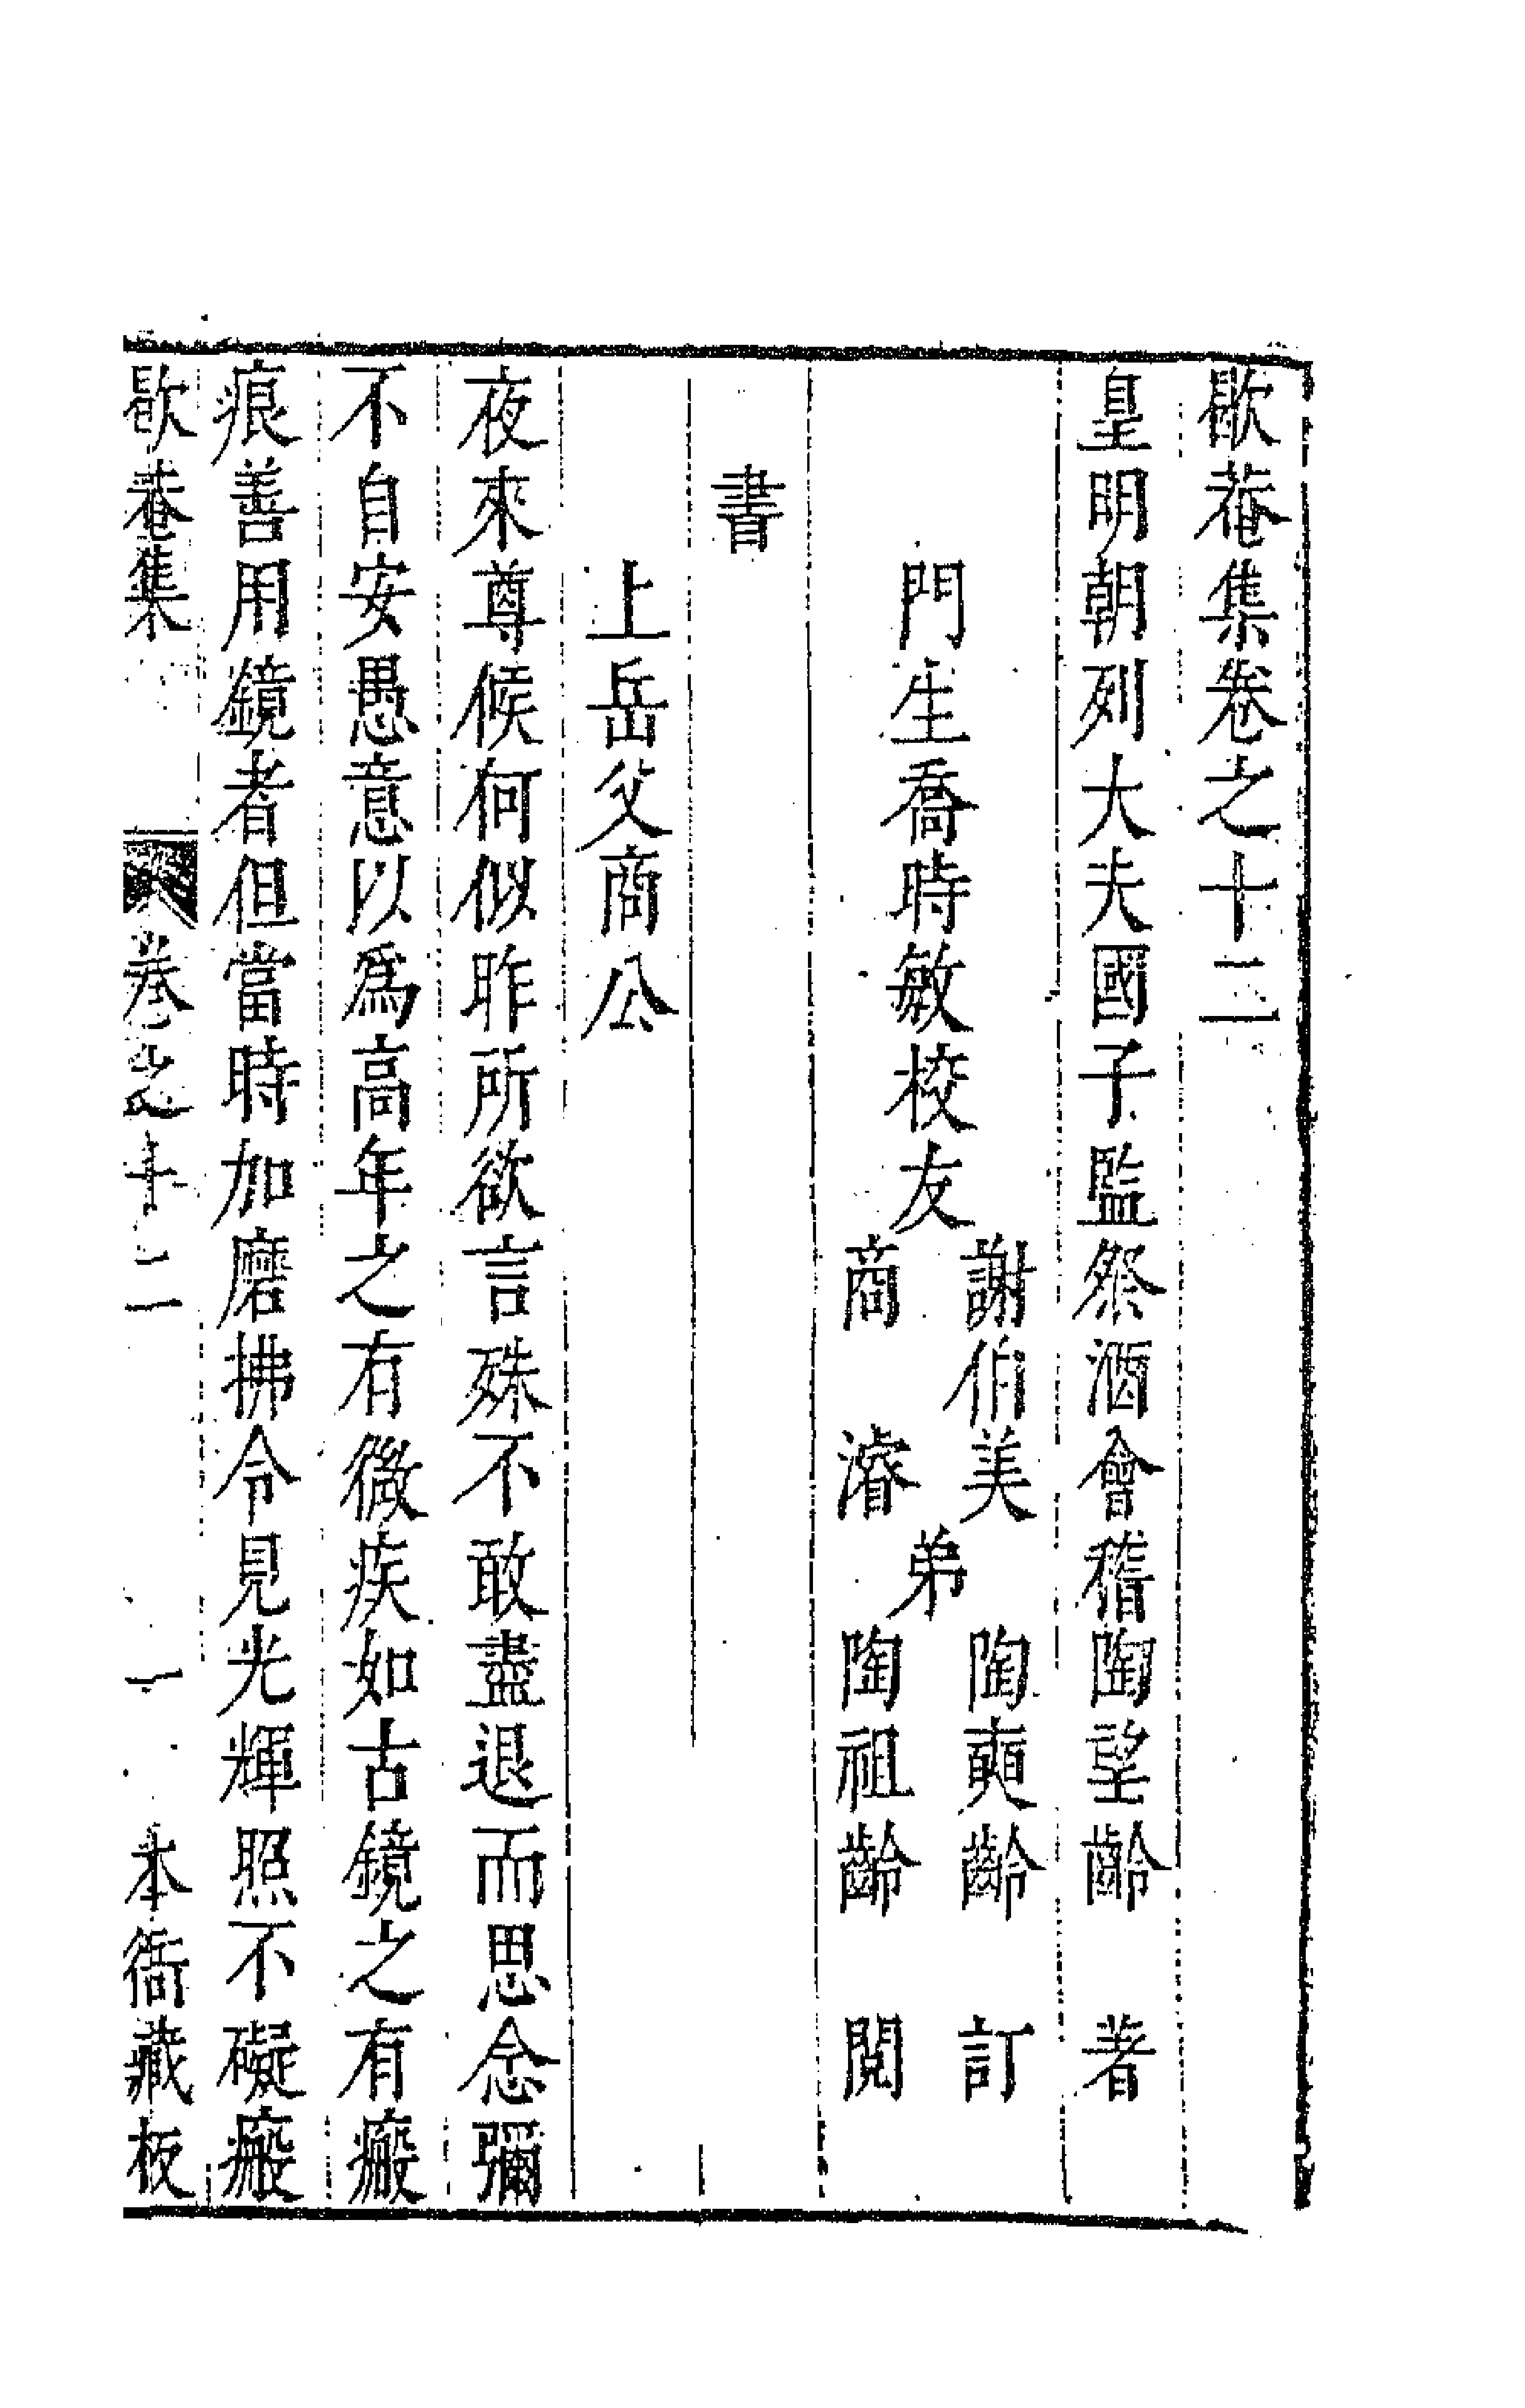 歇菴集卷之十二
皇明朝列大夫國子監祭酒會稽陶望齡 著
門生喬時敏校友
謝伯美
商 濬
弟
陶奭齡 訂
陶祖齡 閱
書
上岳父商公
夜來尊候何似昨所欲言殊不敢盡退而思念彌
不自安愚意以爲高年之有微疾如古鏡之有瘢
痕善用鏡者但當時加磨拂令見光輝照不礙瘢
歇菴集 卷之十二 一 本衙藏板